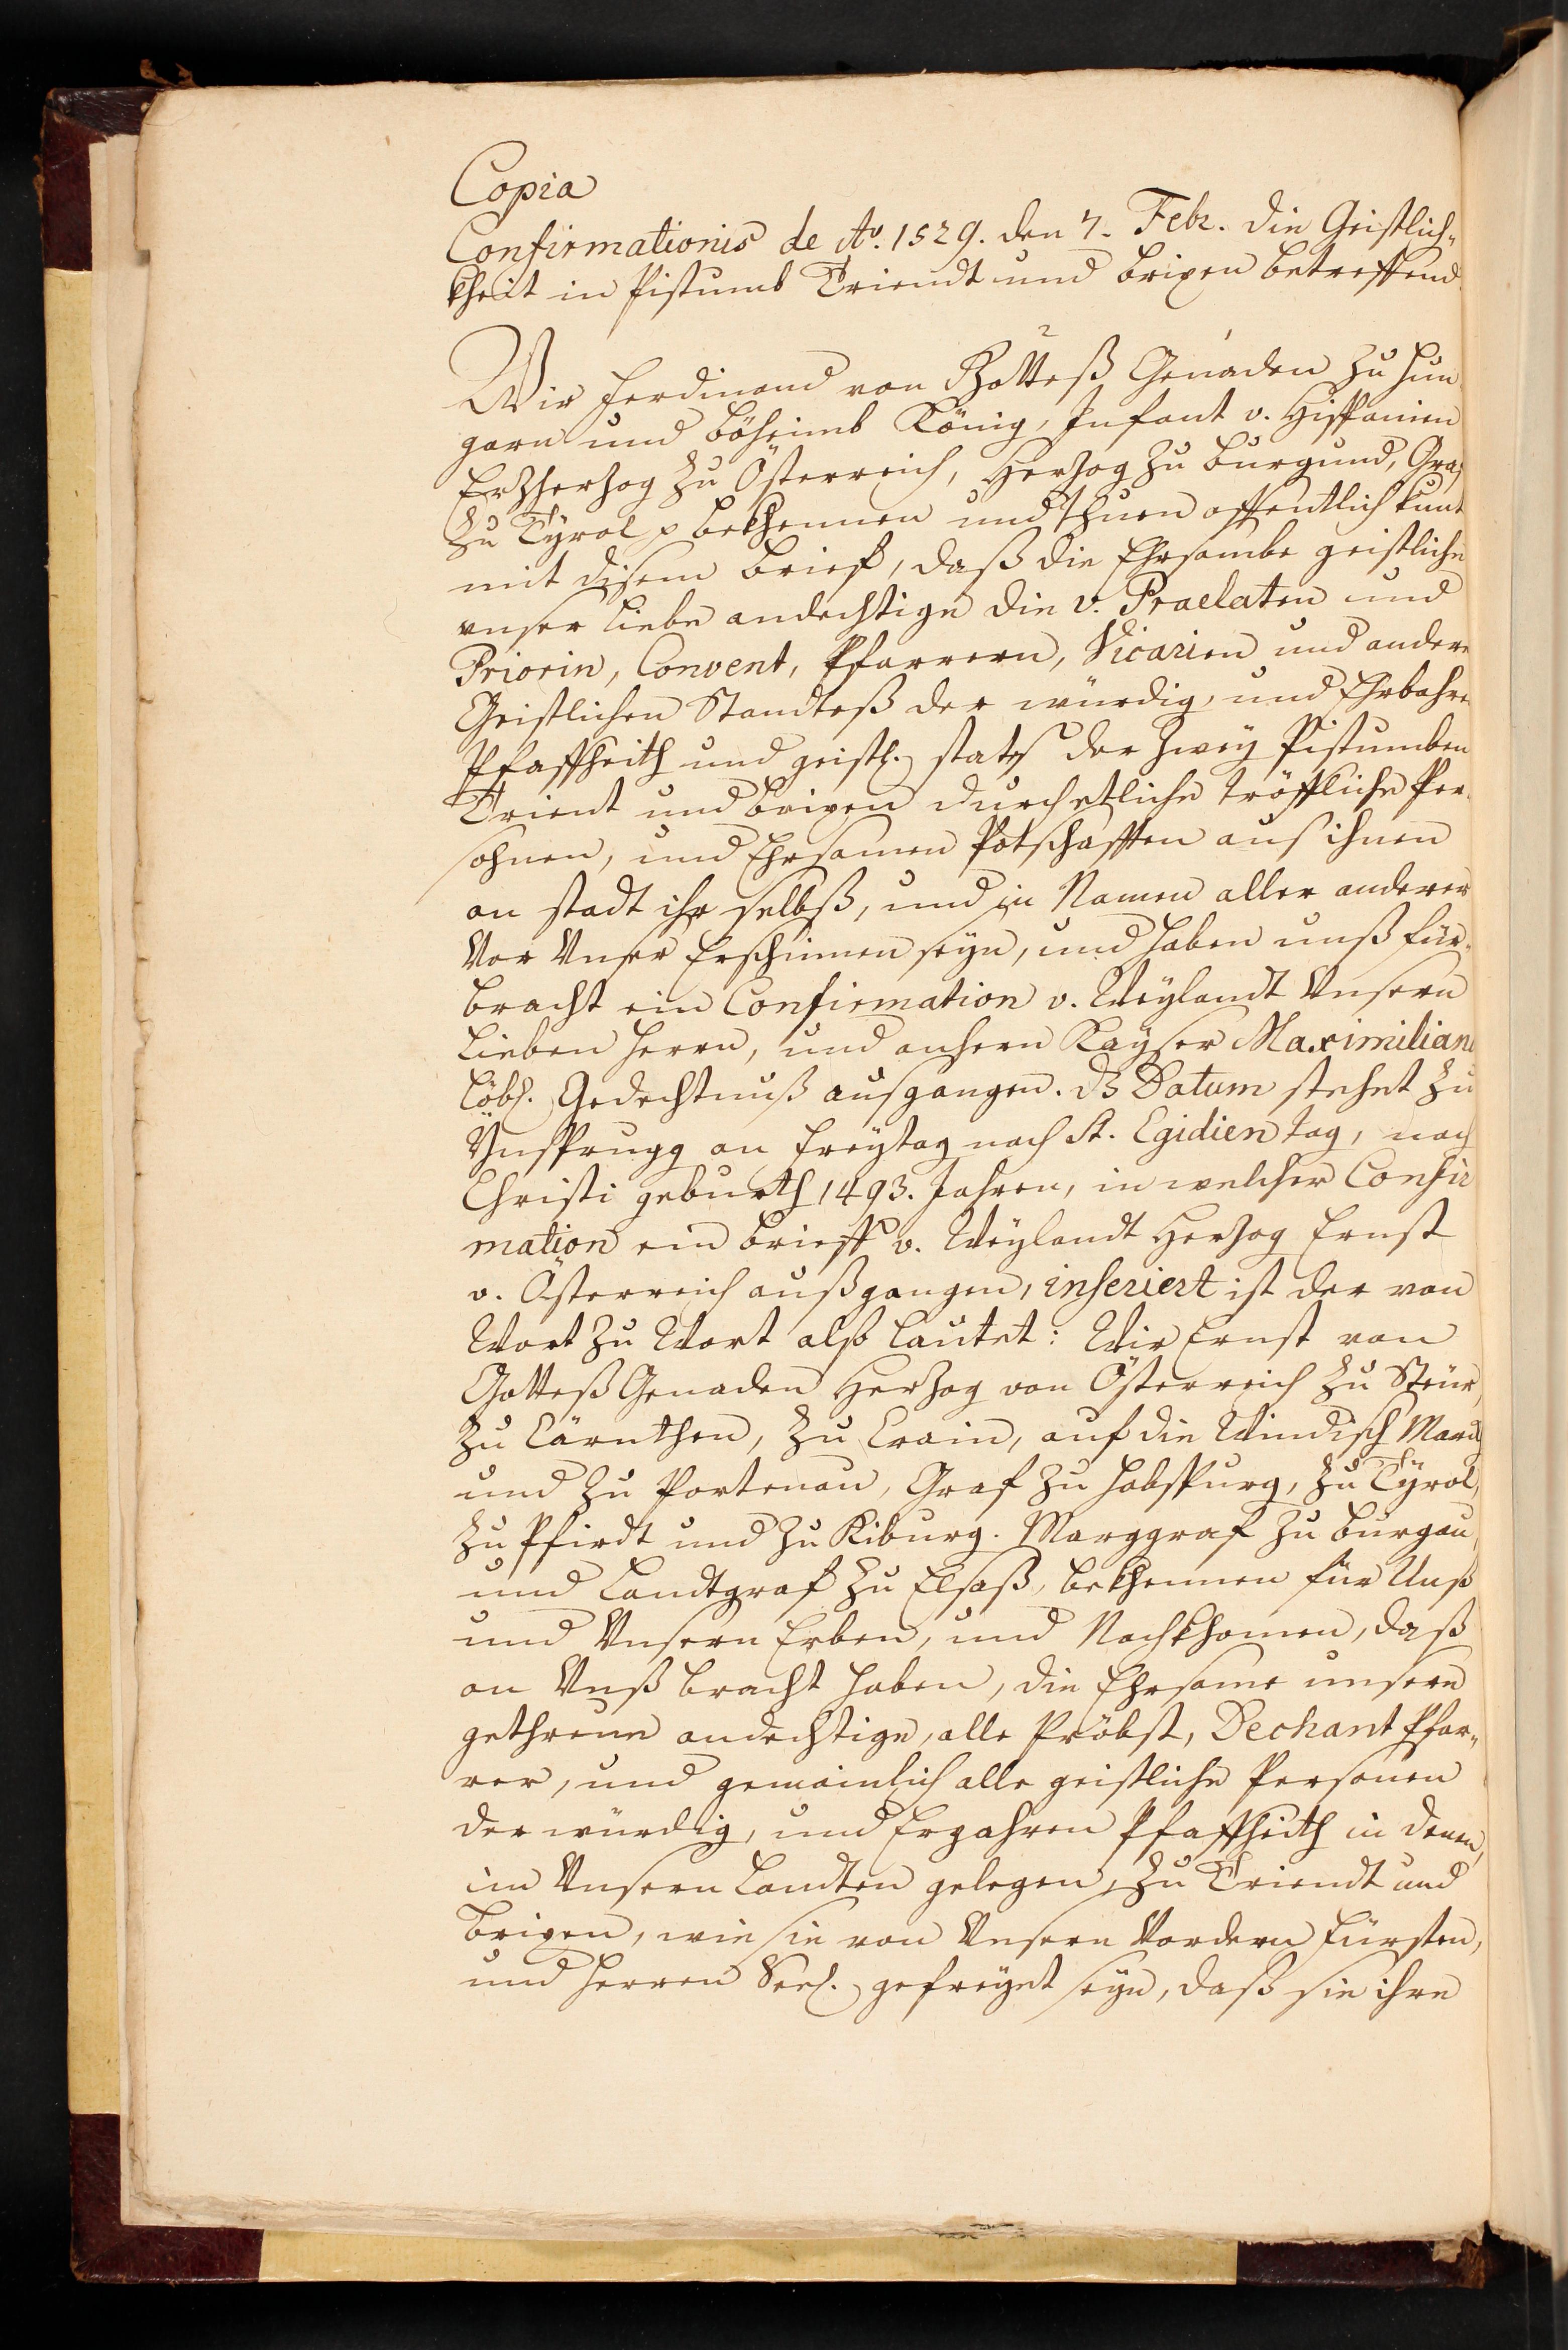 Copia
Confirmationis de Ao. 1529. den 7. Febr. die Geistlich„
kheit in Pistumb Triendt und Brixen betreffend.
Wir Ferdinand von Gotteß Genaden zu Hun
garn und Böheimb König, Infant v. Hispanien
Erzherzog zu Österreich, Herzog zu Burgund, Graf
zu Tyrol p bekhennen und thuen offentlich kunt
mit disem brief, daß die Ehrsambe geistliche
unser liebe andechtige die v. Praelaten und
Priorin, Convent, Pfarrern, Vicarien und andere
Geistlichen Standteß der würdig, und Ehrbahre
Pfaffheith und geistl. stats der zweÿ Pistumben
Trient und Brixen durch etliche tröffliche Per„
sohnen, und Ehrsamen Potschafften aus ihnen
an stadt ihr selbß, und in Namen aller anderer
Vor Unser Erschinnen seÿn, und haben unß für„
bracht ein Confirmation v. Weÿlandt Unsern
lieben Herrn, und anhern Kaÿser Maximiliano
löbl. Gedechtnuß ausgangen. dz Datum stehet zu
Ÿnsprugg an Freÿtag nach St. Egidien tag, nach
Christi geburth 1493. Jahren, in welcher Confir
mation ein brieff v. Weÿlandt Herzog Ernst
v. Österreich außgangen, inseriert ist der von
Wort zu Wort also lautet: Wir Ernst von
Gotteß Genaden Herzog von Österreich zu Steür,
zu Cärnthen, zu Crain, auf die Windisch March
und zu Portenau, Graf zu Habspurg, zu Tÿrol,
zu Pfirdt und zu Kiburg. Marggraf zu Burgau,
und Landtgraf zu Elsaß, bekhennen für Unß
und Unsern Erben, und Nachkhomen, daß
an Unß bracht haben, die Ehrsame unsere
gethreue andechtige, alle Pröbst, Dechant Pfar„
rer, und gemainlich alle geistliche Personen
der würdig, und Erzahren Pfaffheith in denen,
im Unsern Landten gelegen, zu Triendt und
Brixen, wie sie von Unsern Vordern Fürsten,
und Herren Seel. gefreÿet seÿn, daß sie ihre